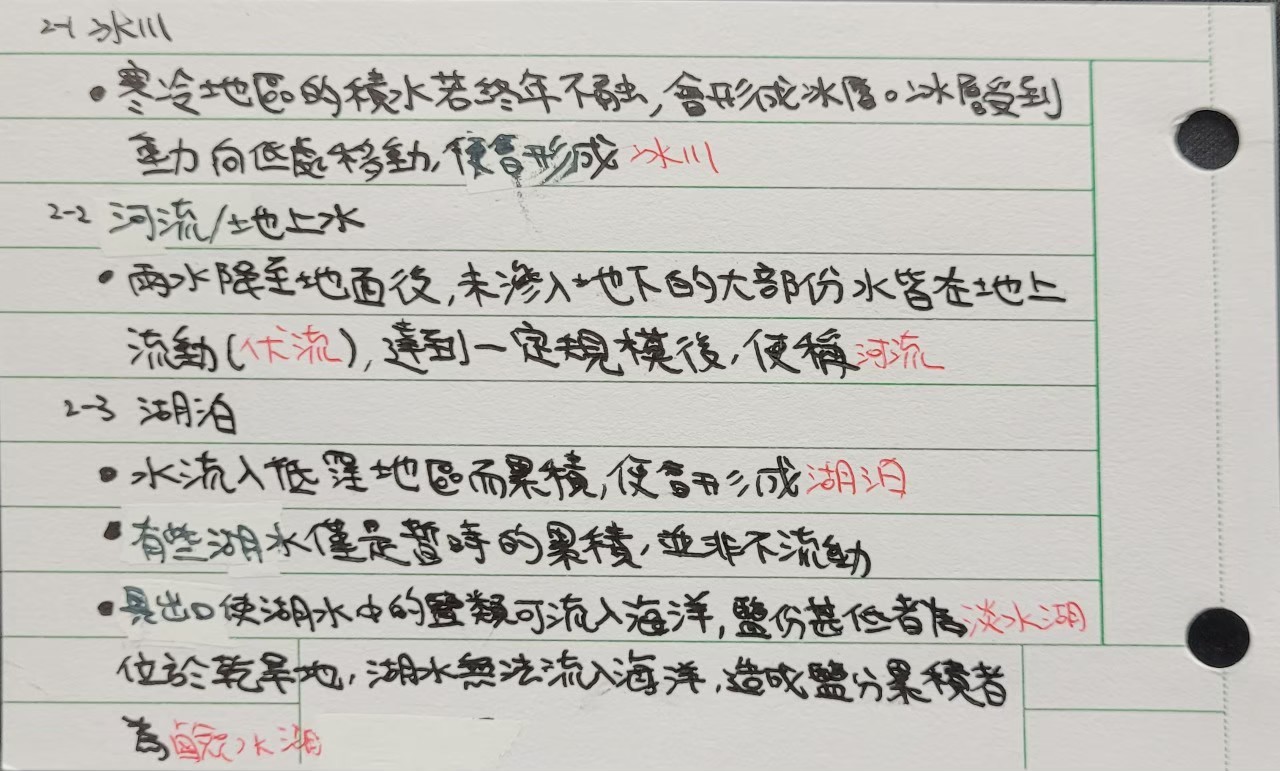 2-1 冰川
• 寒冷地區的積水若終年不融,會形成冰層。冰層受到
重力向低處移動,便會形成冰川
2-2 河流/地上水
• 雨水降至地面後,未滲入地下的大部份水皆在地上
流動(伏流),達到一定規模後,便稱河流
2-3 湖泊
• 水流入低窪地區而累積,便會形成湖泊
• 有些湖水僅是暫時的累積,並非不流動
• 具出口使湖水中的鹽類可流入海洋,鹽份甚低者為淡水湖
位於乾旱地,湖水無法流入海洋,造成鹽分累積者
為鹹水湖